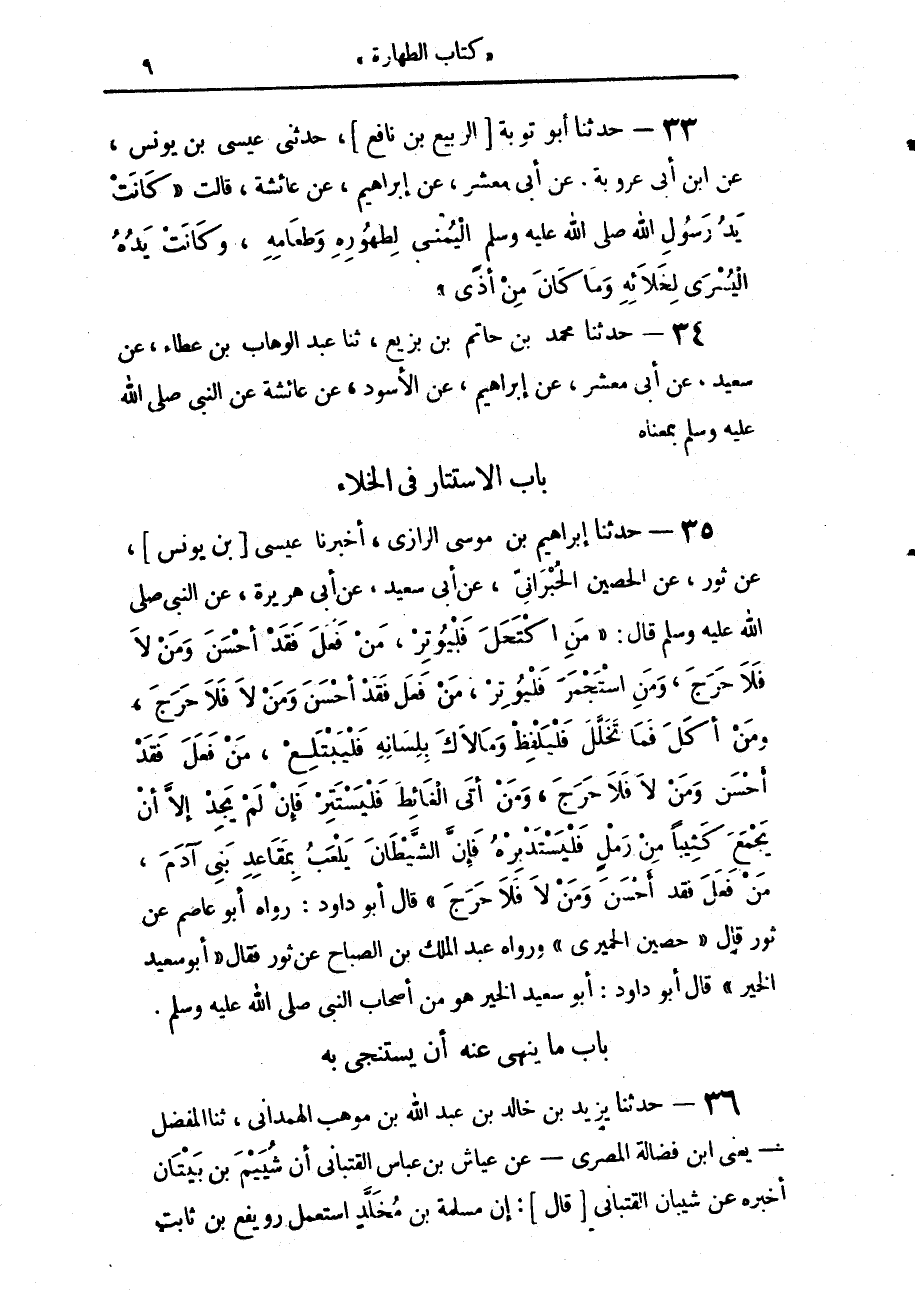 « كتاب الطهارة » ٩
٣٣ — حدثنا أبو توبة [ الربيع بن نافع ]، حدثني عيسى بن يونس ،
عن ابن أبى عروبة . عن أبى معشر ، عن إبراهيم ، عن عائشة ، قالت « كَانَتْ
يَدُ رَسُولِ الله صلى الله عليه وسلم الْيُمْنَى لِطهُورِهِ وَطَعَامِهِ ، وكَانَتْ يَدُهُ
الْيُسْرَى لِخَلَائِهِ وَمَا كَانَ مِنْ أذًى »
٣٤ — حدثنا محمد بن حاتم بن بزيع ، ثنا عبد الوهاب بن عطاء ، عن
سعيد . عن أبى معشر ، عن إبراهيم ، عن الأسود ، عن عائشة عن النبى صلى الله
عليه وسلم بمعناه
باب الاستتار فى الخلاء
٣٥ — حدثنا إبراهيم بن موسى الرازى ، أخبرنا عيسى [ بن يونس ] ،
عن ثور ، عن الحصين الْحُبْرَانِيِّ ، عن أبى سعيد ، عن أبى هريرة ، عن النبى صلى
الله عليه وسلم قال : « مَنِ اكْتَحَلَ فَلْيُوتِرْ ، مَنْ فَعَلَ فَقَدْ أحْسَنَ وَمَنْ لاَ
فَلَا حَرَجَ ، وَمَنِ اسْتَجْمَرَ فَلْيُوتِرْ ، مَنْ فَعَلَ فَقَدْ أحْسَنَ وَمَنْ لاَ فَلَا حَرَجَ ،
ومَنْ أكَلَ فَمَا تَخَلَّلَ فَلْيَلْفِظْ وَمَا لاَكَ بِلِسَانِهِ فَلْيَبْتَلِعْ ، مَنْ فَعَلَ فَقَدْ
أحْسَن وَمَنْ لاَ فَلَا حَرَجَ ، وَمَنْ أتَى الْغَائِطَ فَلْيَسْتَتِرْ فَإِنْ لَمْ يَجِدْ إلاَّ أنْ
يَجْمَعَ كَثِيباً مِنْ رَمْلٍ فَلْيَسْتَدْبِرْهُ فَإِنَّ الشَّيْطَانَ يَلْعَبُ بِمَقَاعِدِ بَنِى آدَمَ ،
مَنْ فَعَلَ فقد أَحْسَنَ وَمَنْ لاَ فَلَا حَرَجَ » قال أبو داود : رواه أبو عاصم عن
ثور قال « حصين الحميرى » ورواه عبد الملك بن الصباح عن ثور فقال « أبو سعيد
الخير » قال أبو داود : أبو سعيد الخير هو من أصحاب النبى صلى الله عليه وسلم .
باب ما ينهى عنه أن يستنجى به
٣٦ — حدثنا يزيد بن خالد بن عبد الله بن موهب الهمدانى ، ثنا المفضل
— يعنى ابن فضالة المصرى — عن عياش بن عباس القتبانى أن شُيَيْمَ بن بَيْتَان
أخبره عن شيبان القتبانى [ قال ] : إن مسلمة بن مُخَلَّدٍ استعمل رويفع بن ثابت